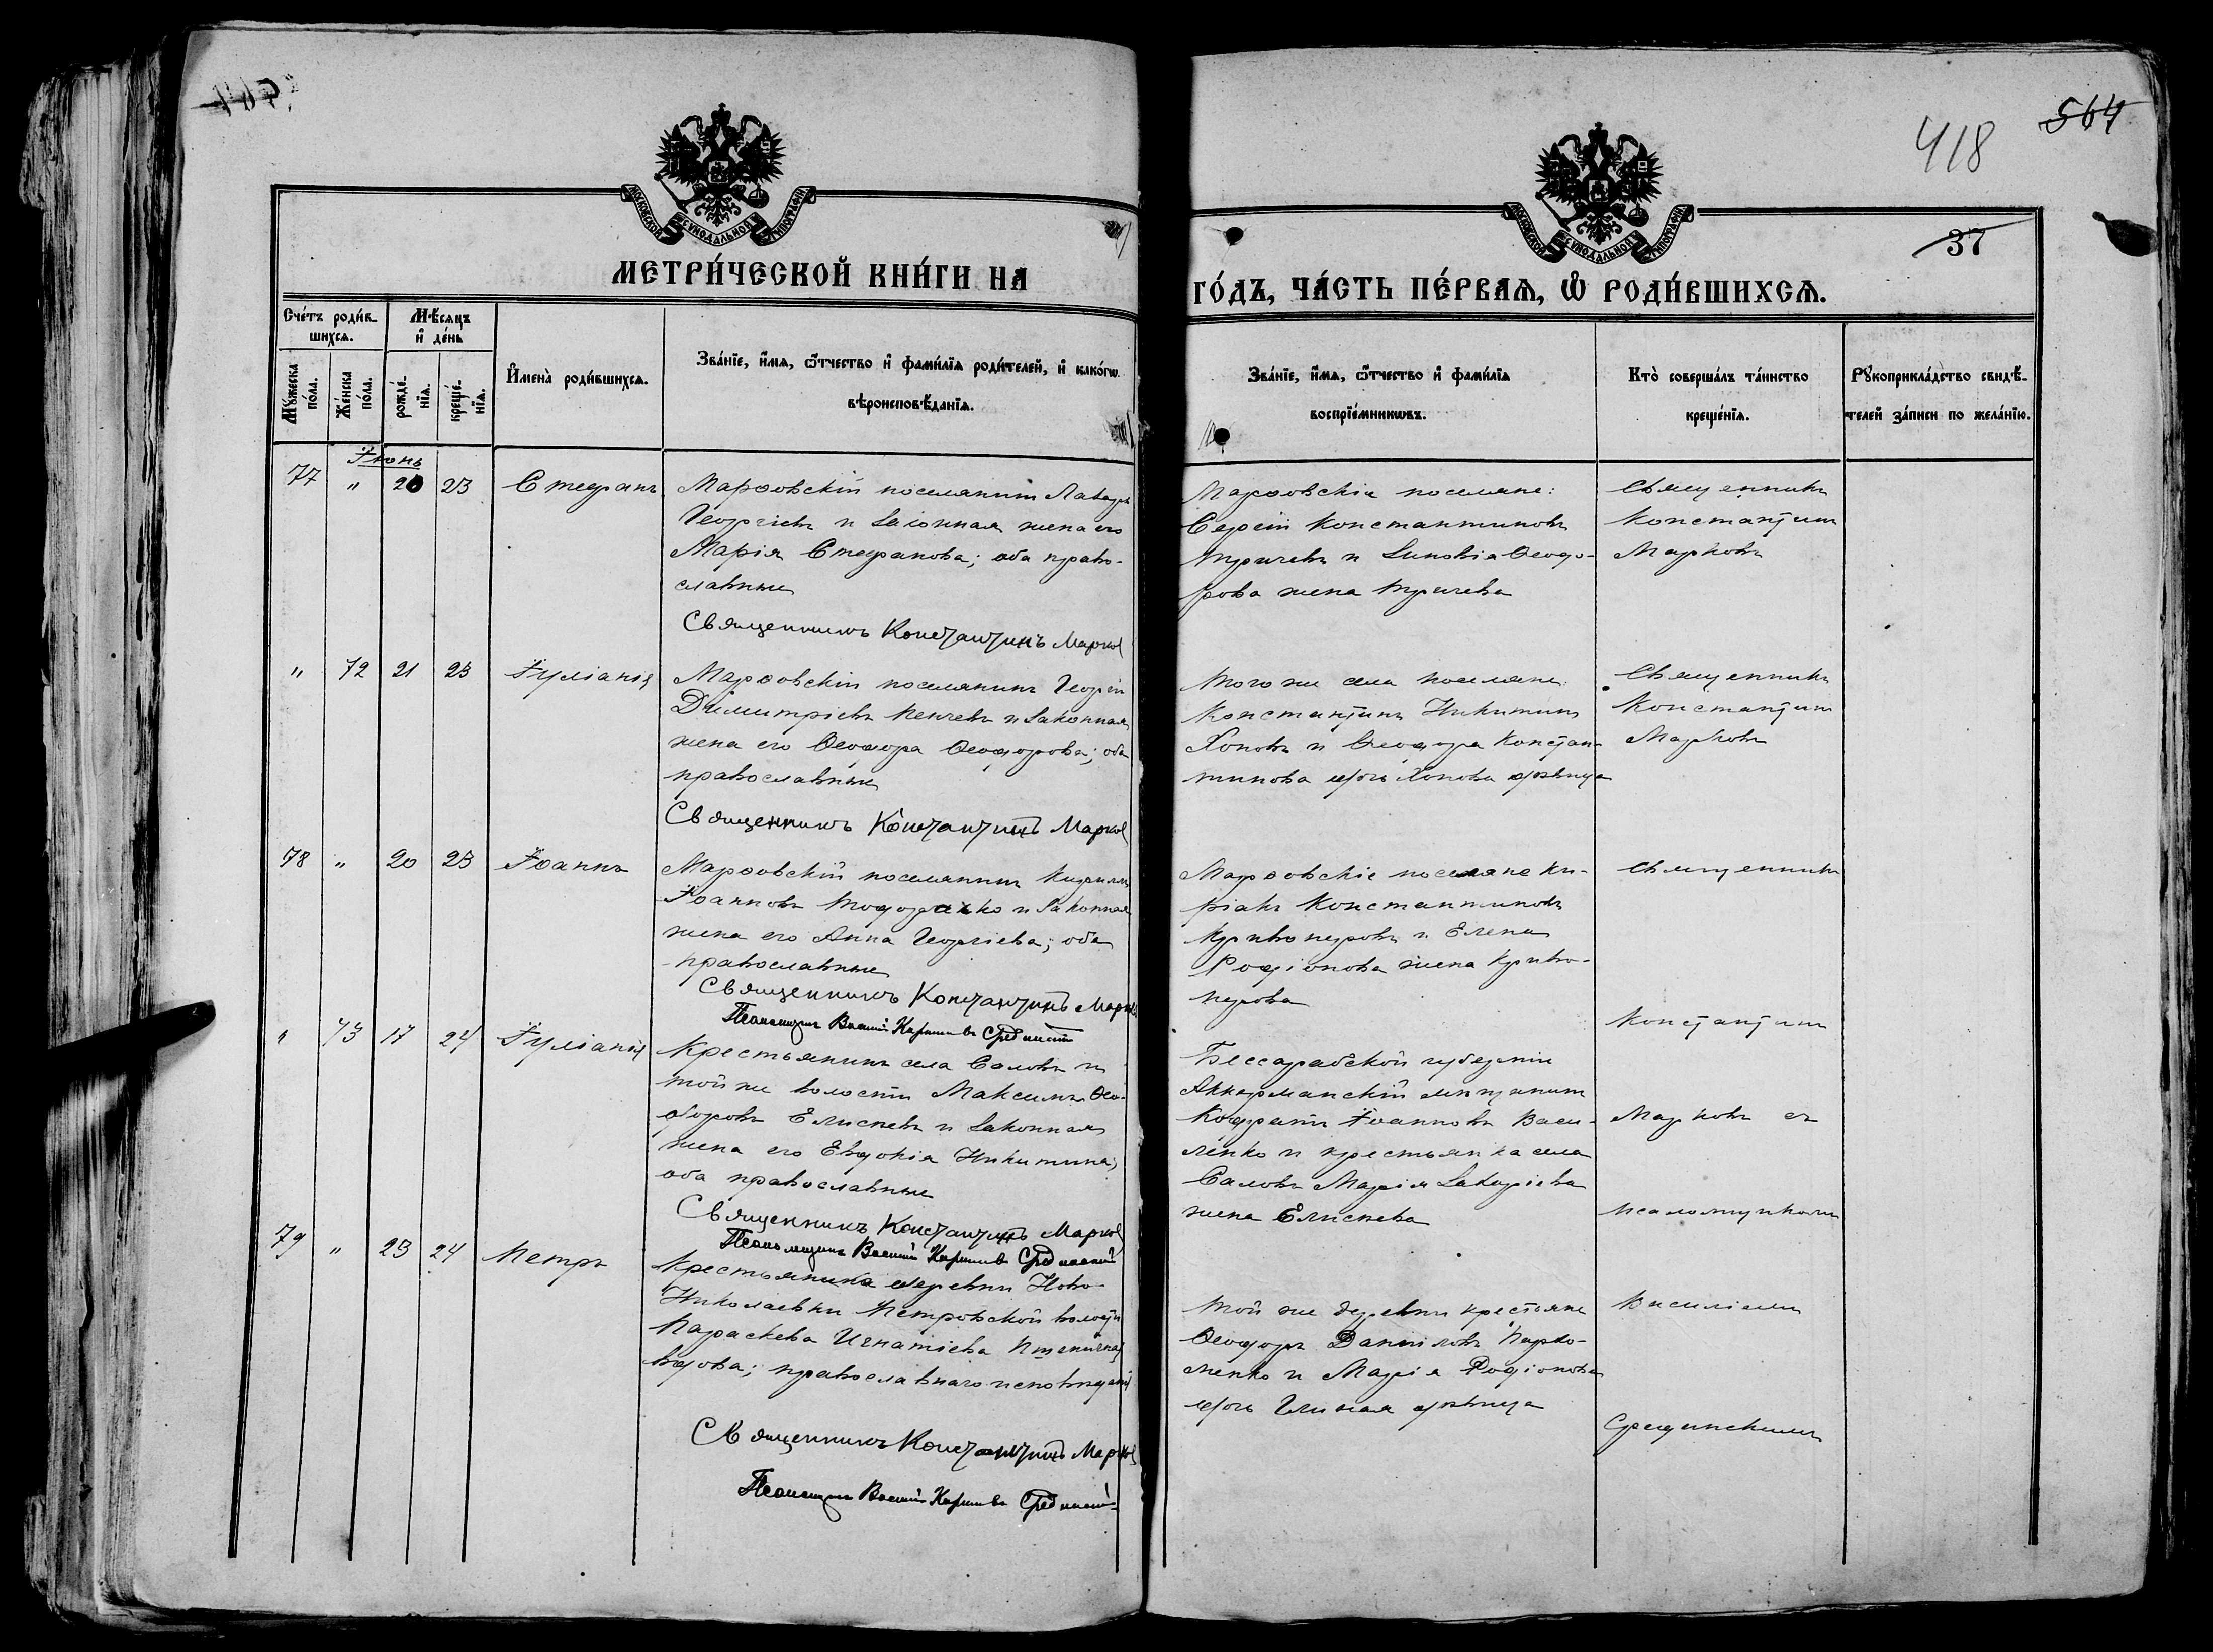 418
564
37
МОСКОВСКОЙ СУНОДАЛЬНОЙ ТИПОГРАФІИ
МОСКОВСКОЙ СУНОДАЛЬНОЙ ТИПОГРАФІИ
МЕТРИ́ЧЕСКОЙ КНИ́ГИ НА
ГО́ДЪ, ЧА́СТЬ ПЕ́РВАѦ, Ѡ РОДИ́ВШИХСѦ.
Сче́тъ роди́в-
шихсѧ.
Мѣ́сѧцъ
и҆ де́нь
Мꙋ́жеска
по́ла.
Же́нска
по́ла.
рожде́-
нїѧ.
креще́-
нїѧ.
И҆мена̀ роди́вшихсѧ.
Зва́нїе, и҆́мѧ, ѻ҆́тчество и҆ фами́лїѧ роди́телей, и҆ како́гѡ
вѣроисповѣ́данїѧ.
Зва́нїе, и҆́мѧ, ѻ҆́тчество и҆ фами́лїѧ
воспрїе́мникѡвъ.
Кто̀ соверша́лъ та́инство
креще́нїѧ.
Рꙋкоприкла́дство свидѣ́-
телей за́писи по жела́нїю.
Іюнь
77 " 20 23 Стефанъ
Марфовскій поселянинъ Лазарь
Георгіевъ и законная жена его
Марія Стефанова; оба право-
славные
Священникъ Константинъ Марков
Марфовскіе поселяне:
Сергій Константиновъ
Тричевъ и Зиновія Ѳеодо-
рова жена Тричева
Священникъ
Константинъ
Марковъ
" 72 21 23 Іуліанія
Марфовскій поселянинъ Георгій
Димитріевъ Пенчевъ и законная
жена его Ѳеодора Ѳеодорова; оба
православные
Священникъ Константинъ Марков
Того же села поселяне:
Константинъ Никитинъ
Хоповъ и Ѳеодора Констан-
тинова дочь Хопова дѣвица
Священникъ
Константинъ
Марковъ
78 " 20 23 Іоаннъ
Марфовскій поселянинъ Кириллъ
Іоанновъ и законная
жена его Анна Георгіева; оба
православные
Священникъ Константинъ Марков
Псаломщикъ Василій Срединскій
Марфовскіе поселяне Ки-
ріакъ Константиновъ
и Елена
Родіонова жена
Священникъ
" 73 17 24 Іуліанія
Крестьянинъ села Саловъ и
той же волости Максимъ Ѳео-
доровъ Елисѣевъ и законная
жена его Евдокія Никитина;
оба православные
Священникъ Константинъ Марков
Псаломщикъ Василій Срединскій
Бессарабской губерніи
Аккерманскій мѣщанинъ
Кодратъ Іоанновъ Васи-
ленко и крестьянка села
Саловъ Марія Захаріева
жена Елисѣева
Константинъ
Марковъ съ
псаломщикомъ
79 " 23 24 Петръ
Крестьянка деревни Ново-
Николаевки Петровской волости
Параскева Игнатіева Пшеничная
вдова; православнаго исповѣданія
Священникъ Константинъ Марков
Псаломщикъ Василій Срединскій
Той же деревни крестьяне
Ѳеодоръ Данииловъ Пархо-
менко и Марія Родіонова
дочь дѣвица
Василіемъ
Срединскимъ